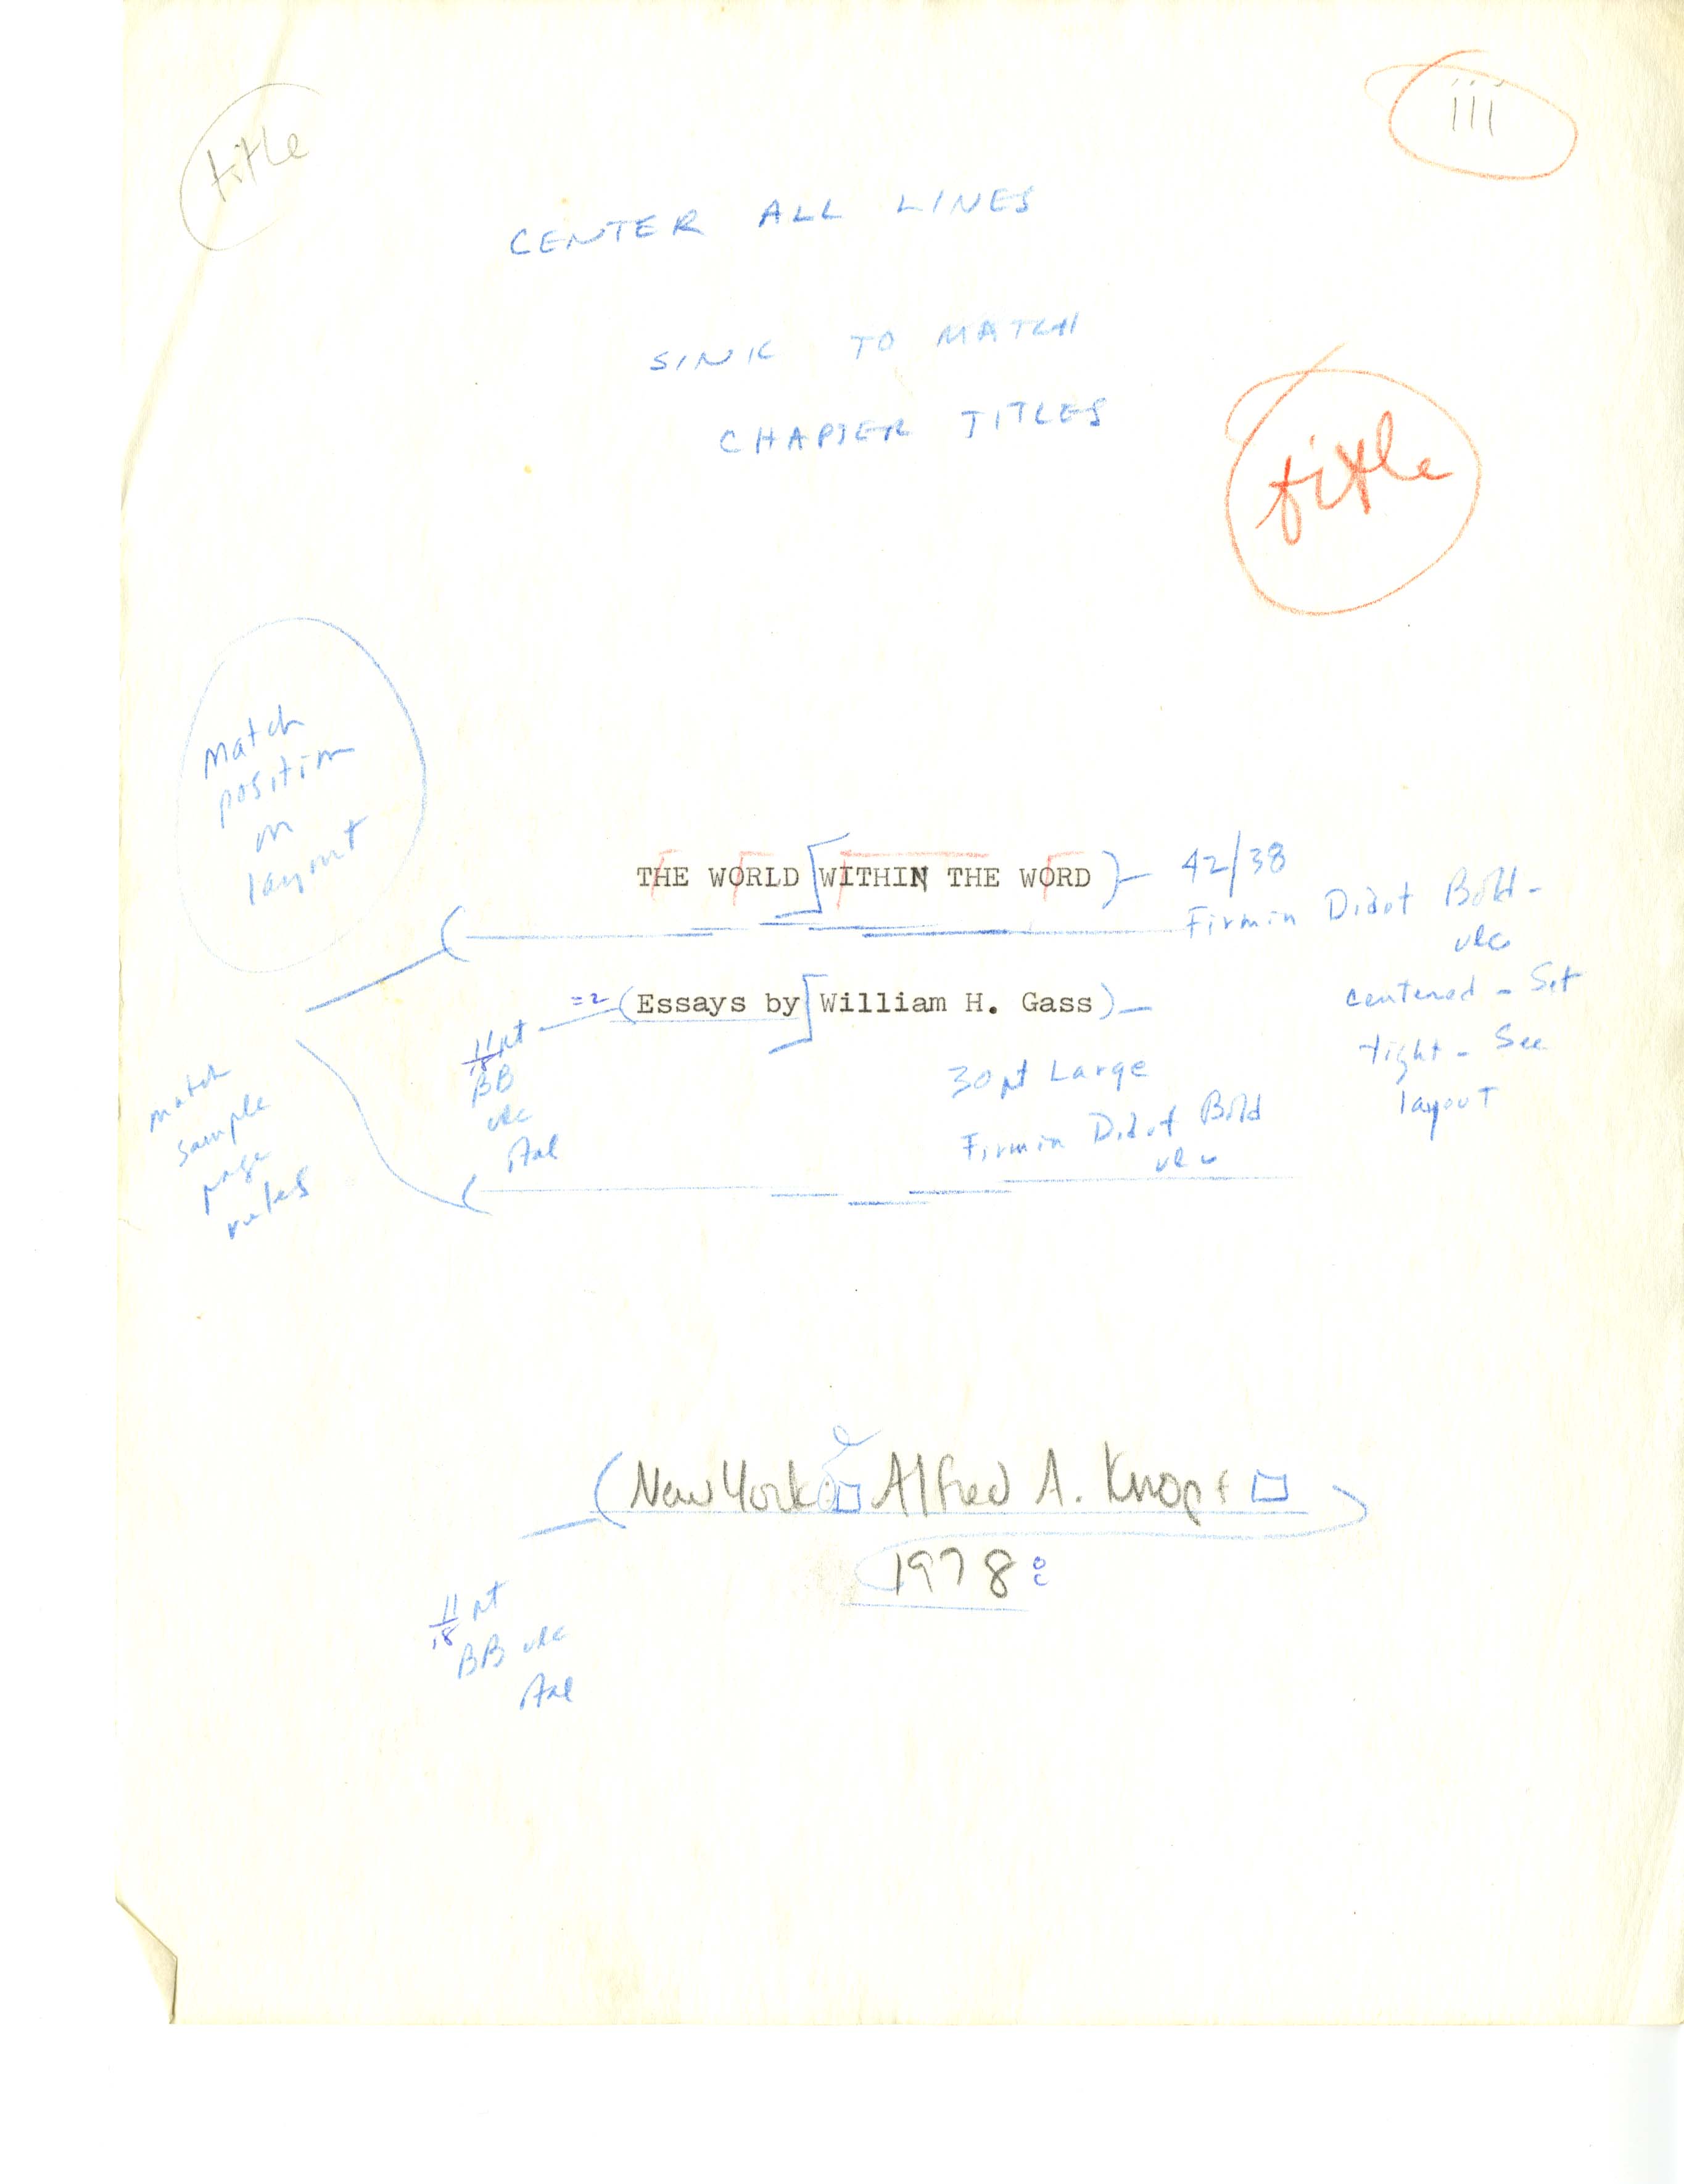 title
iii
CENTER ALL LINES
SINK TO MATCH
CHAPTER TITLES
title
match
position
on
layout
THE WORLD WITHIN THE WORD
42/38
Firmin Didot Bold -
ulc
centered - Set
tight - See
layout
=2 (Essays by William H. Gass)
11/18 pt
BB
ulc
Ital
30 pt Large
Firmin Didot Bold
ulc
match
sample
page
rules
(New York Alfred A. Knopf
1978
11/18 pt
BB ulc
Ital